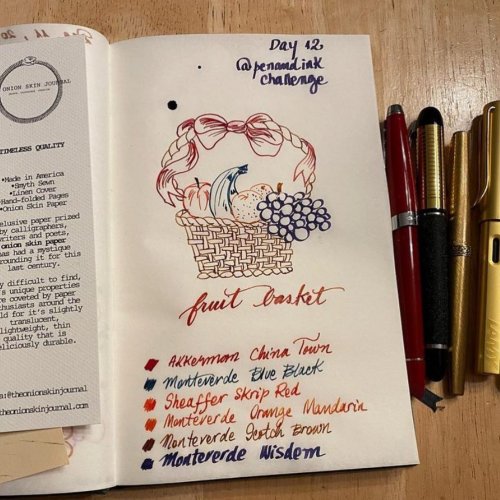 ONION SKIN JOURNAL
TIMELESS QUALITY
•Made in America
•Smyth Sewn
•Linen Cover
Hand-folded Pages
•Onion Skin Paper
elusive paper prized
by calligraphers,
writers and poets,
onion skin paper
has had a mystique
surrounding it for this
last century.
difficult to find,
unique properties
are coveted by paper
enthusiasts around the
world for it's slightly
translucent,
lightweight, thin
quality that is
deliciously durable.
@theonionskinjournal
theonionskinjournal.com
Day 12
@penandink
challenge
fruit basket
Akkerman China Town
Monteverde Blue Black
Sheaffer Skrip Red
Monteverde Orange Mandarin
Monteverde Scotch Brown
Monteverde Wisdom